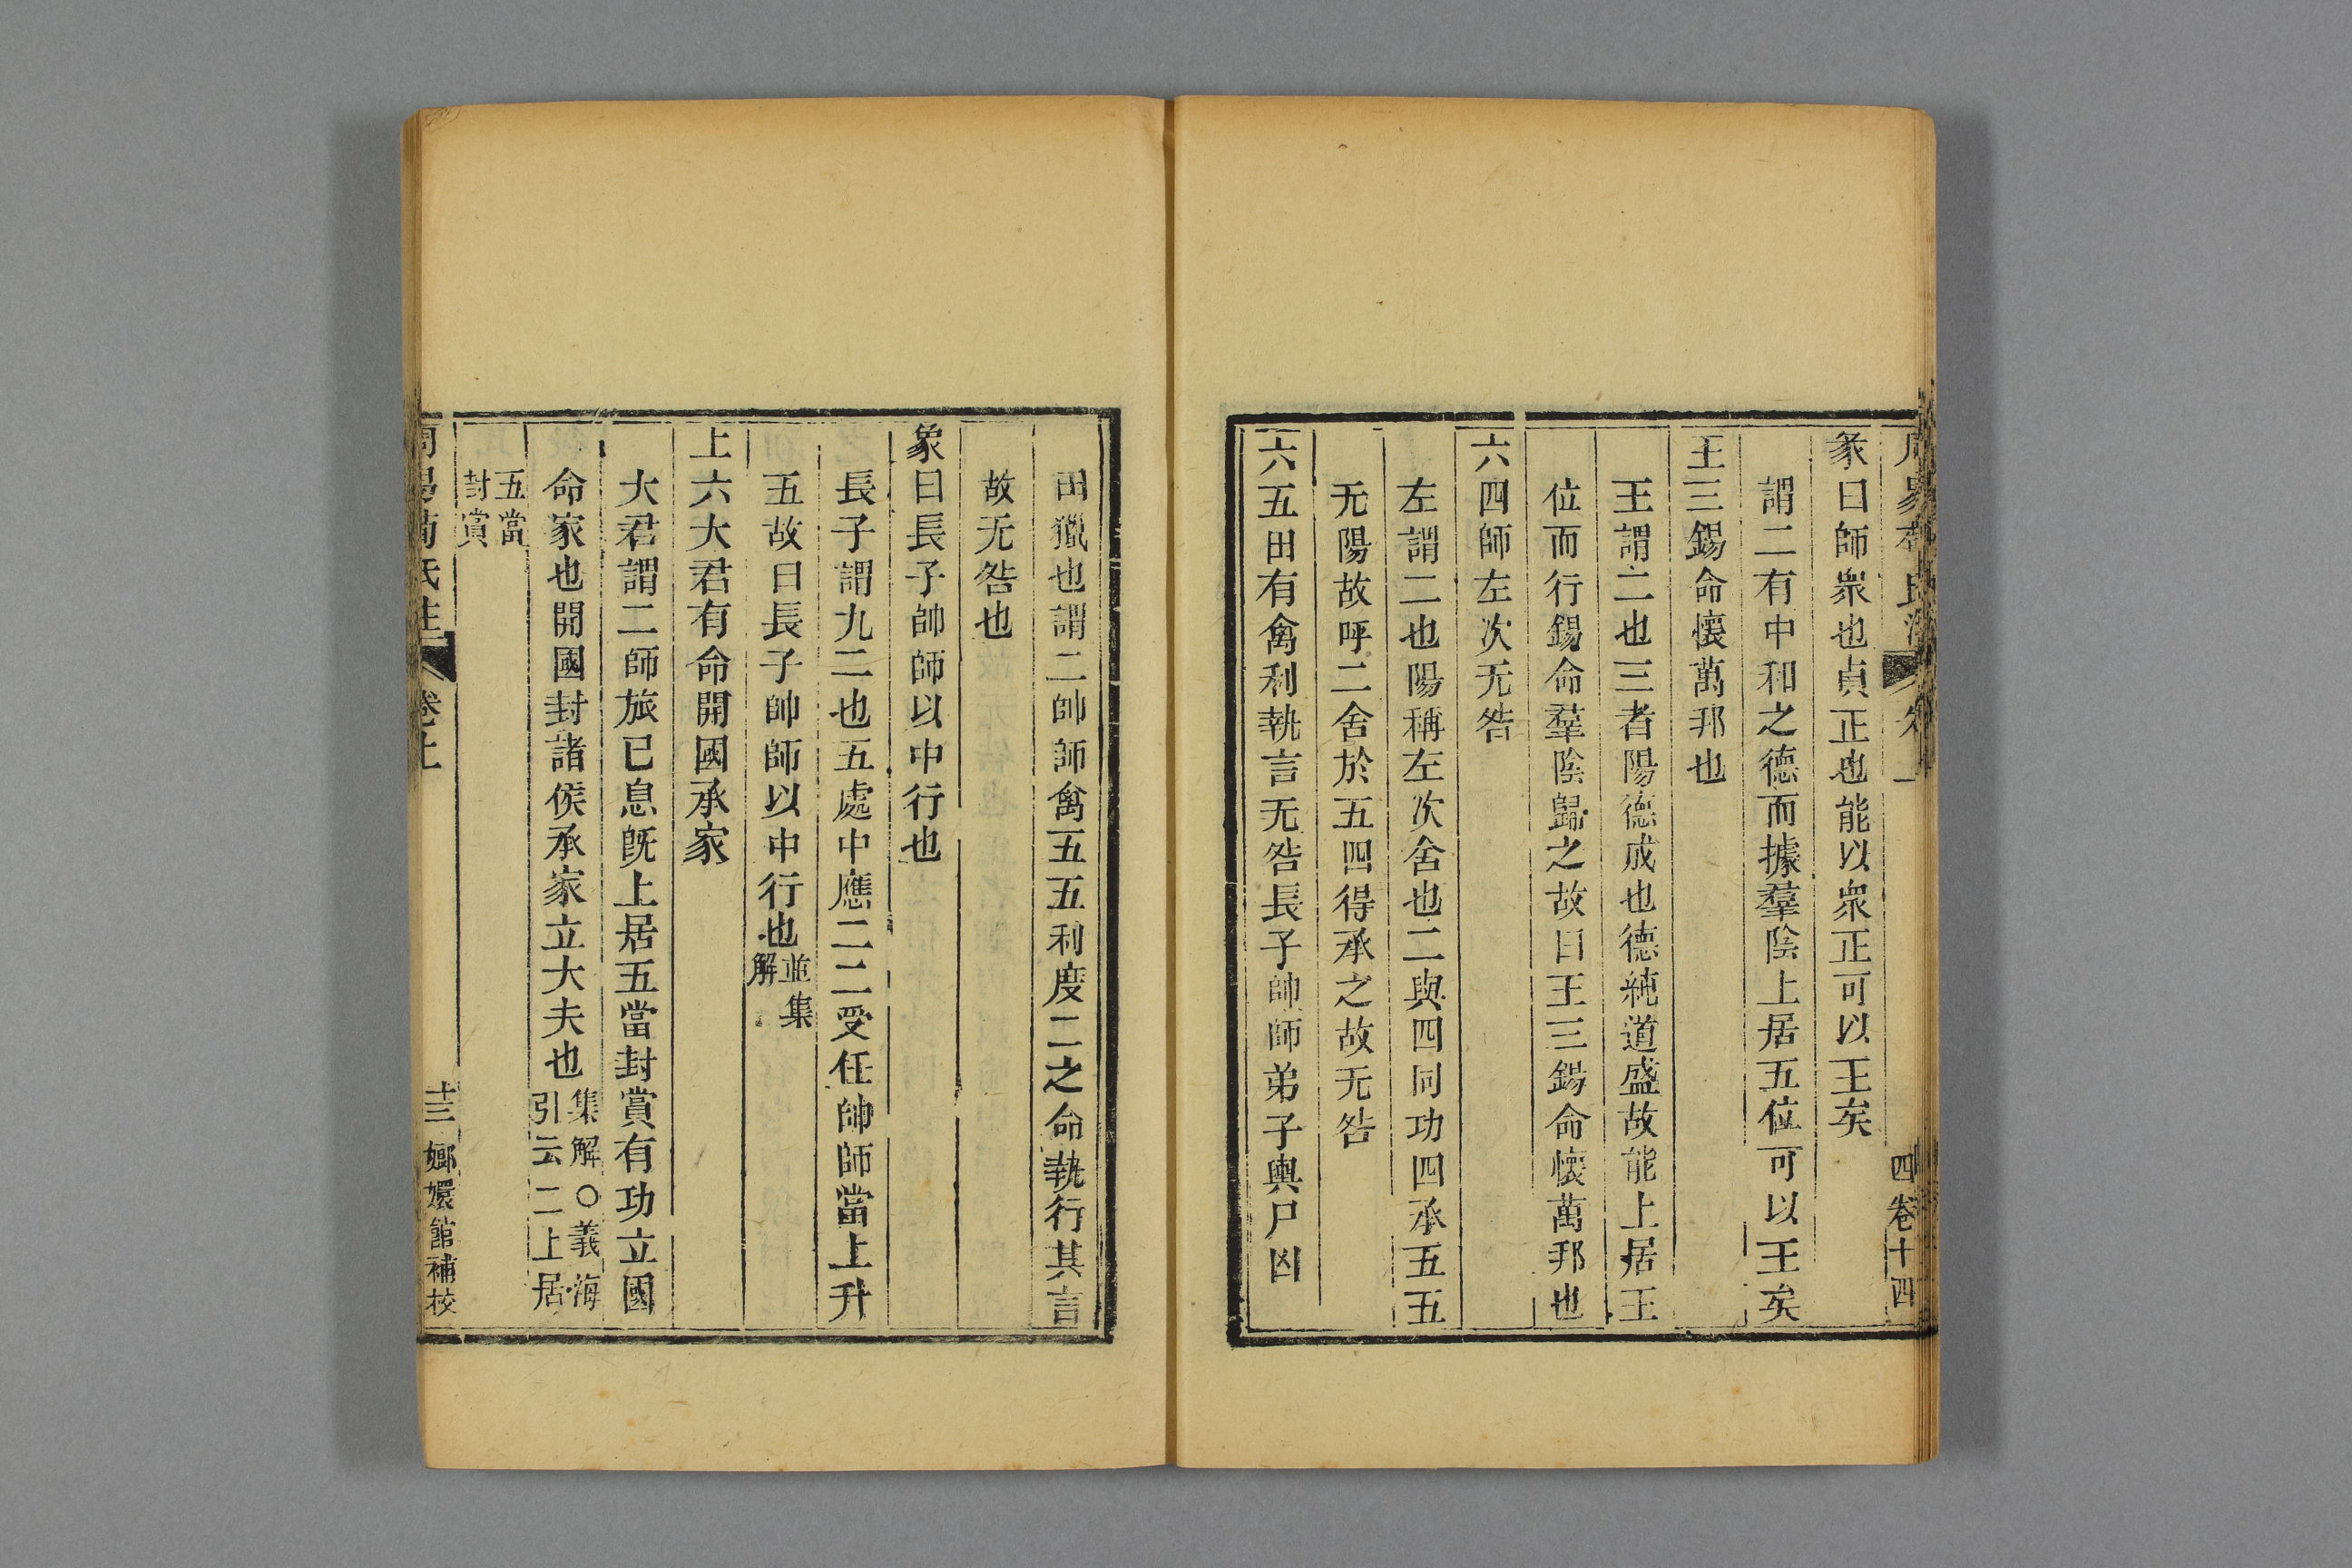 彖曰師衆也貞正也能以衆正可以王矣
謂二有中和之德而據羣陰上居五位可以王矣
王三錫命懷萬邦也
王謂二也三者陽德成也德純道盛故能上居王
位而行錫命羣陰歸之故曰王三錫命懷萬邦也
六四師左次无咎
左謂二也陽稱左次舍也二與四同功四承五五
无陽故呼二舍於五四得承之故无咎
六五田有禽利執言无咎長子帥師弟子輿尸凶
田獵也謂二帥師禽五五利度二之命執行其言
故无咎也
象曰長子帥師以中行也
長子謂九二也五處中應二二受任帥師當上升
五故曰長子帥師以中行也並集
解
上六大君有命開國承家
大君謂二師旅已息旣上居五當封賞有功立國
命家也開國封諸侯承家立大夫也集解○義海
引云二上居
五當
封賞
周易荀氏注 卷上 十三 嫏嬛館補校
四卷十四